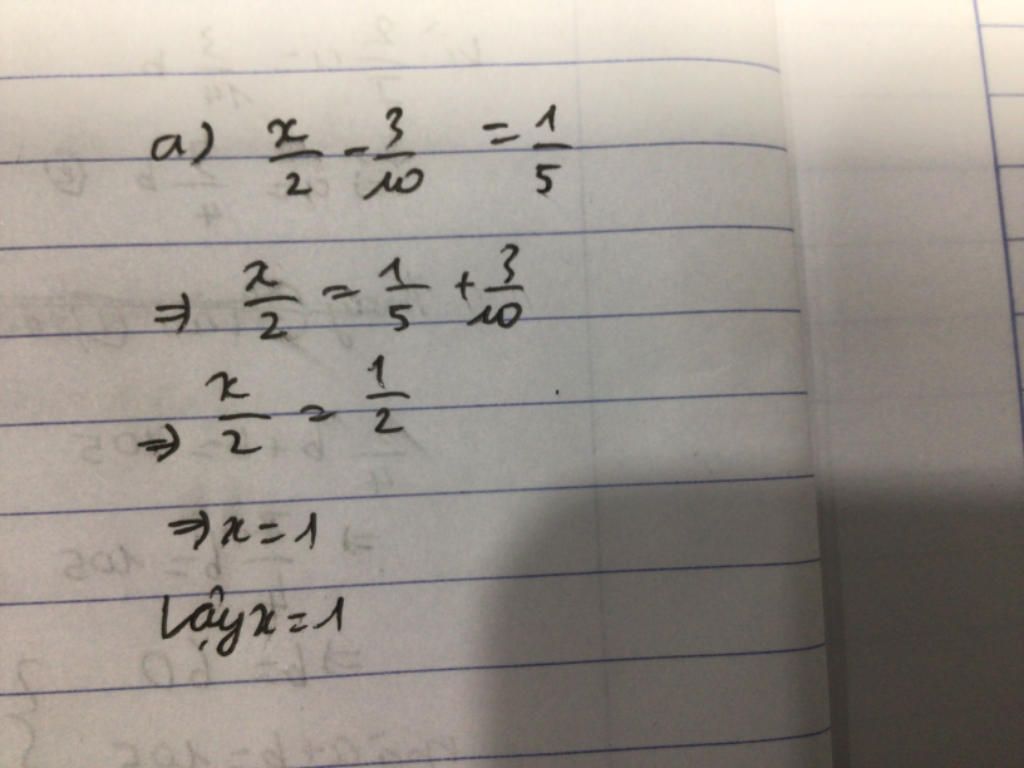 a) x/2 - 3/10 = 1/5
⇒ x/2 = 1/5 + 3/10
⇒ x/2 = 1/2
⇒ x = 1
Vậy x = 1